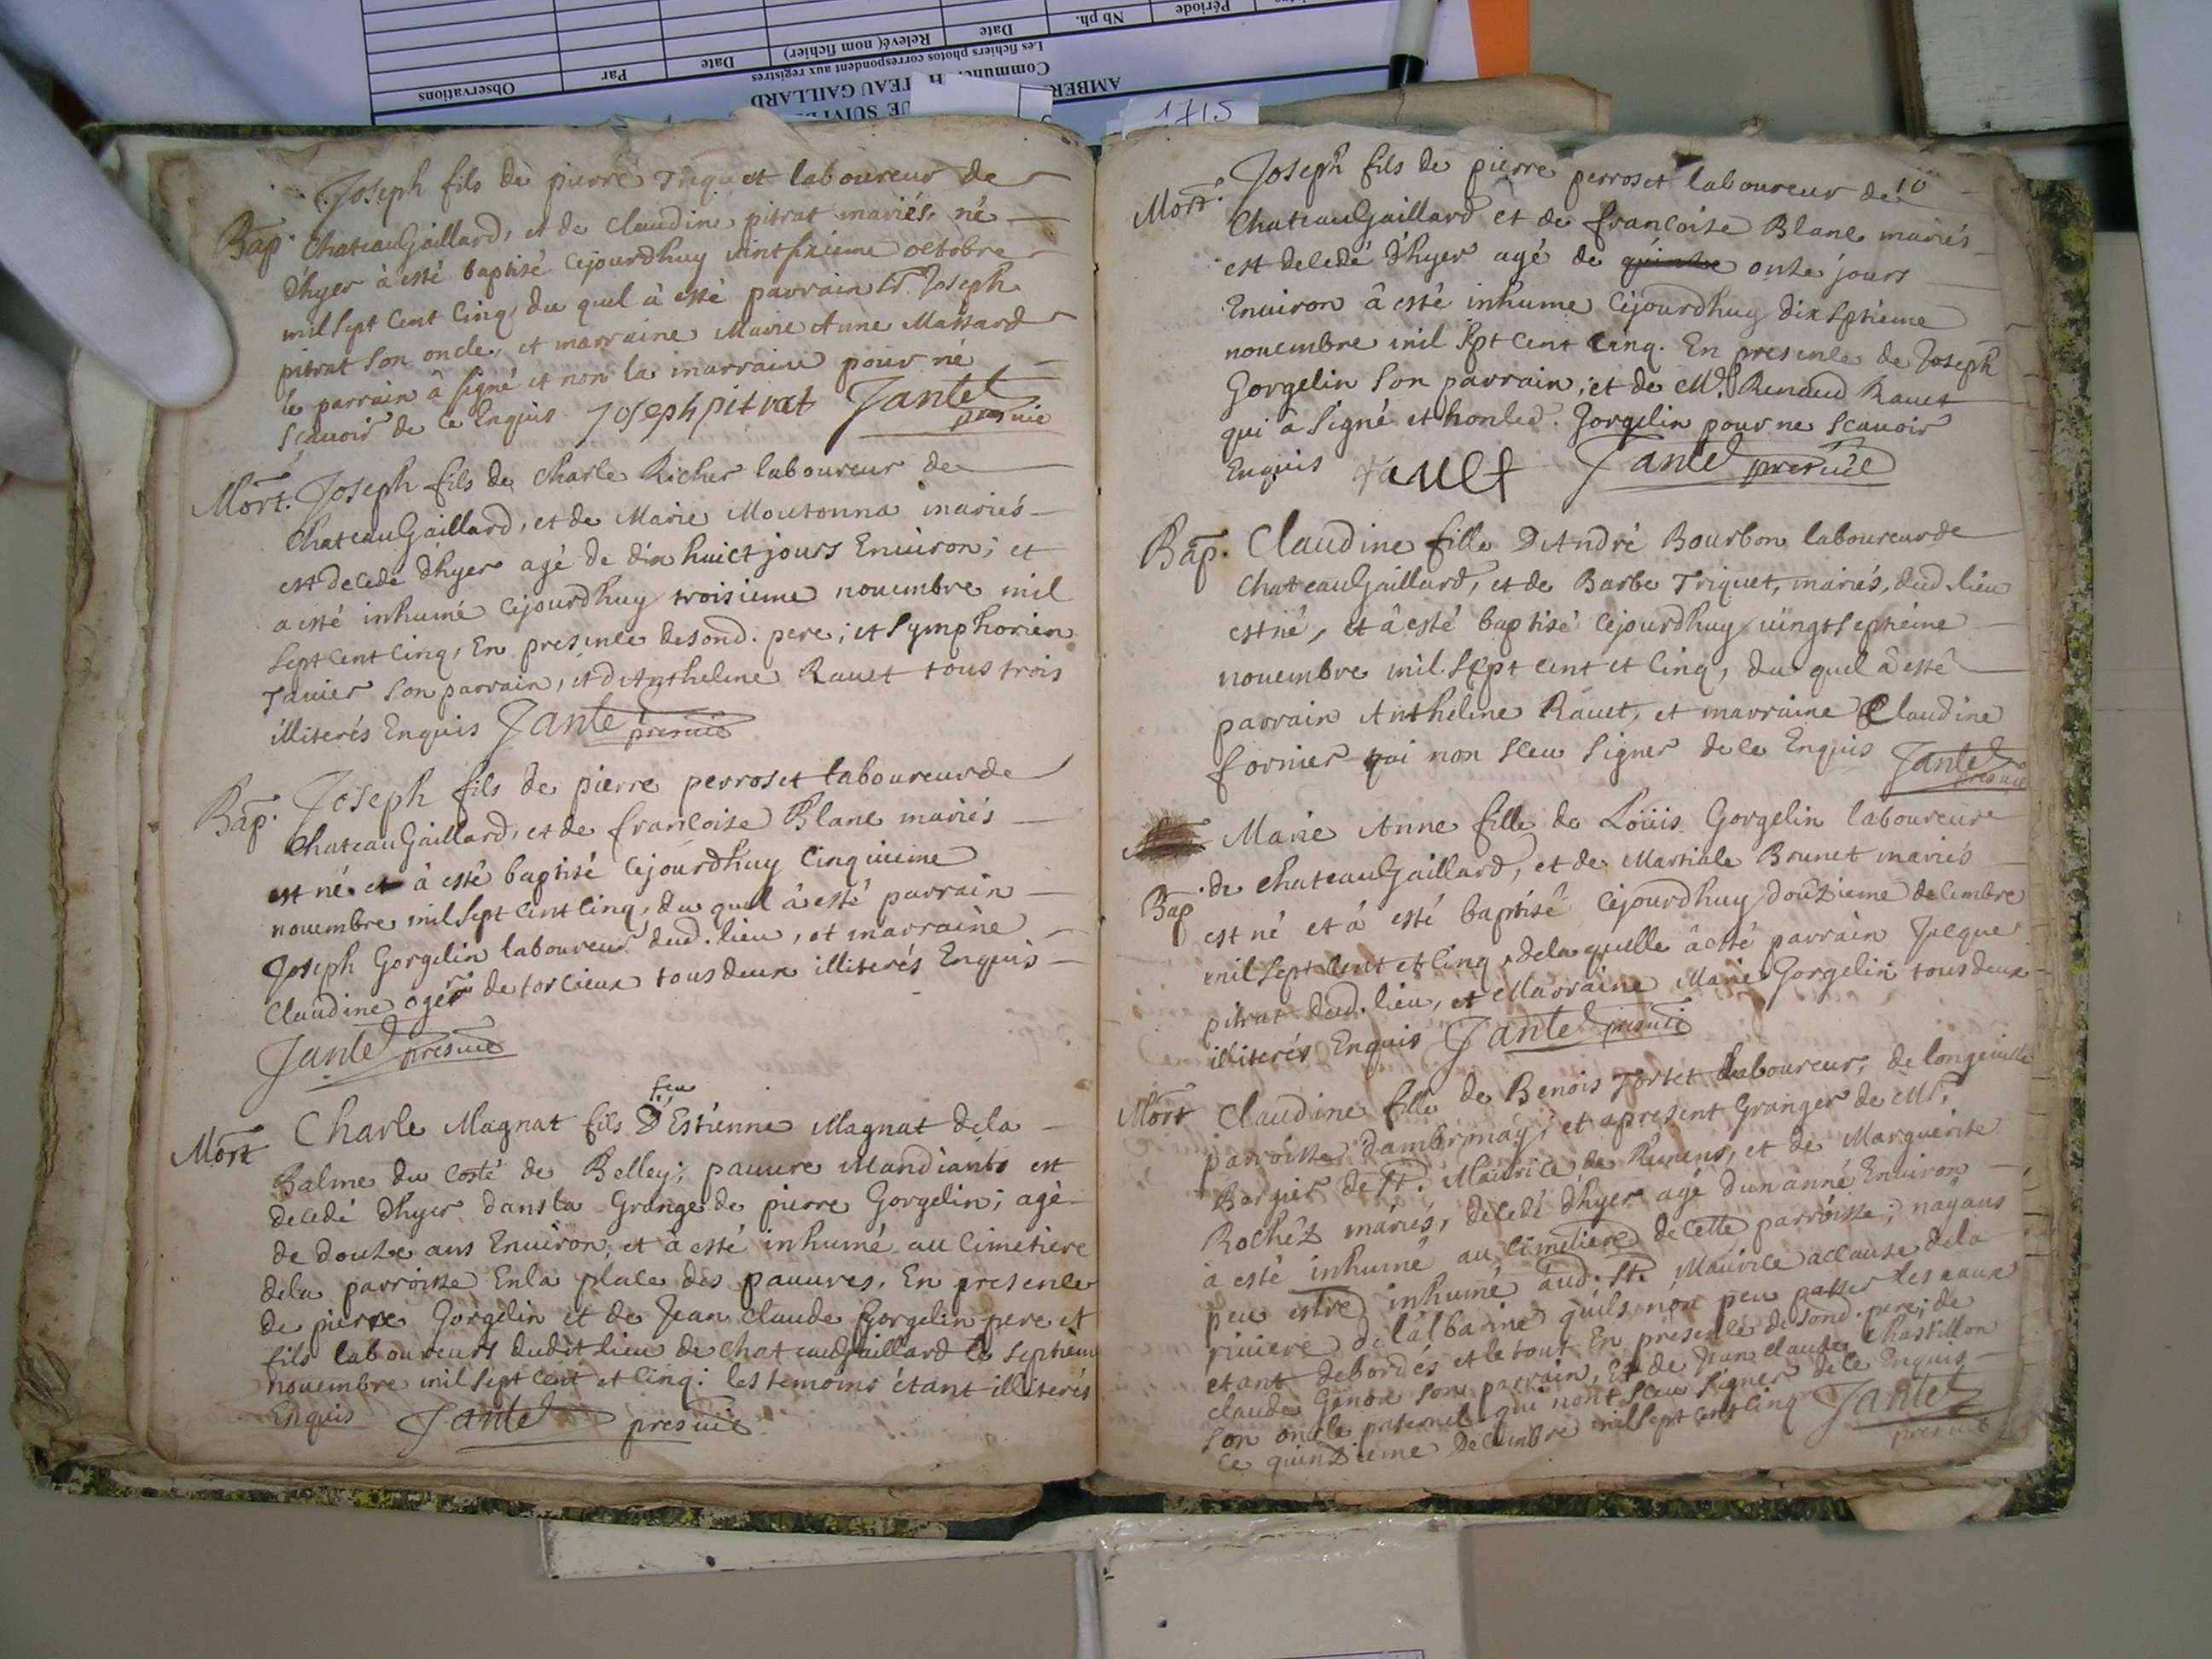 Observations
Par
Date
Relevé (nom fichier)
Date
Nb ph.
Période
Les fichiers photos correspondent aux registres
Commune
TEAU GAILLARD
AMBER
UE SUIVI
1715
Joseph fils de pierre Triquet laboureur de
Bap. Chateaugaillard, et de Claudine pitrat mariés, né
d'hyer à esté baptisé cejourdhuy vintsixieme octobre
mil sept cent cinq, du quel à esté parrain sr. Joseph
pitrat son oncle, et marraine Marie Anne Massard
le parrain à signé et non la marraine pour né
scavoir de ce Enquis Joseph pitrat Jantet
presvic
Mort. Joseph fils de Charle Richer laboureur de
Chateaugaillard, et de Marie Moutonna mariés
est decedé d'hyer agé de dix huict jours Environ; et
a esté inhumé cejourdhuy troisieme novembre mil
sept cent cinq, En presence de sond. pere; et Symphorien
Janier son parrain, et d'Anthelme Ravet tous trois
illiterés Enquis Jantet presvic
Bap. Joseph fils de pierre perroset laboureur de
Chateaugaillard, et de francoise Blanc mariés
est né et à esté baptisé cejourdhuy cinquieme
novembre mil sept cent cinq, du quel à esté parrain
Joseph Gorgelin laboureur dud. lieu, et marraine
Claudine oger de torcieux tous deux illiterés Enquis
Jantet presvic
feu
Mort Charle Magnat fils D'Estienne Magnat de la
Balme du costé de Belley; pauvre Mandiants est
decedé d'hyer dans la Grange de pierre Gorgelin; agé
de douze ans Environ, et à esté inhumé au cimetiere
de la parroisse En la place des pauvres, En presence
de pierre Gorgelin et de Jean Claude Gorgelin pere et
fils laboureurs dudit lieu de chateaugaillard le septieme
novembre mil sept cent et cinq: les temoins étant illiterés
Enquis Jantet presvic
10
Mort. Joseph fils de pierre perroset laboureur de
Chateaugaillard et de francoise Blanc mariés
est decedé d'hyer agé de quinze onze jours
Environ à esté inhume cejourdhuy dixseptieme
novembre mil sept cent cinq. En presence de Joseph
Gorgelin son parrain; et de Mr. Renaud Ravet
qui à signé et non led. Gorgelin pour ne scavoir
Enquis Jantet presvic
Bap. Claudine fille D'André Bourbon laboureur de
Chateaugaillard, et de Barbe Triquet, mariés, dud. lieu
est né, et à esté baptisé cejourdhuy vingtseptiéme
novembre mil sept cent et cinq, du quel à esté
parrain Anthelme Ravet, et marraine Claudine
fornier qui non sceu signer de ce Enquis Jantet
presvic
Marie Anne fille de Loüis Gorgelin laboureur
Bap. de chateaugaillard, et de Martiale Brunet mariés
est né et à esté baptisé cejourdhuy douzieme decembre
mil sept cent et cinq, de la quelle à esté parrain Jacque
pitrat dud. lieu, et Marraine Marie Gorgelin tous deux
illiterés Enquis Jantet presvic
Mort Claudine fille de Benois Tortet laboureur, de longeville
parroisse d'ambronay, et apresent Granger de Mr.
Bergier de St. Maurice de Remens, et de Marguerite
Rochéz mariés, decedé d'hyer agé d'un anné Environ
à esté inhumé au cimetiere de cette parroisse; nayans
peu estre inhumé aud. St. Maurice a cause de la
riviere de l'albarine qu'ils non peu passer les eaux
etant debordés et le tout En presence de sond. pere; de
claude Genod son parrain, Et de Jean claude Chastillon
son oncle paternel qui nont sceu signer de ce Enquis
ce quinzieme decembre mil sept cent cinq Jantet
presvic